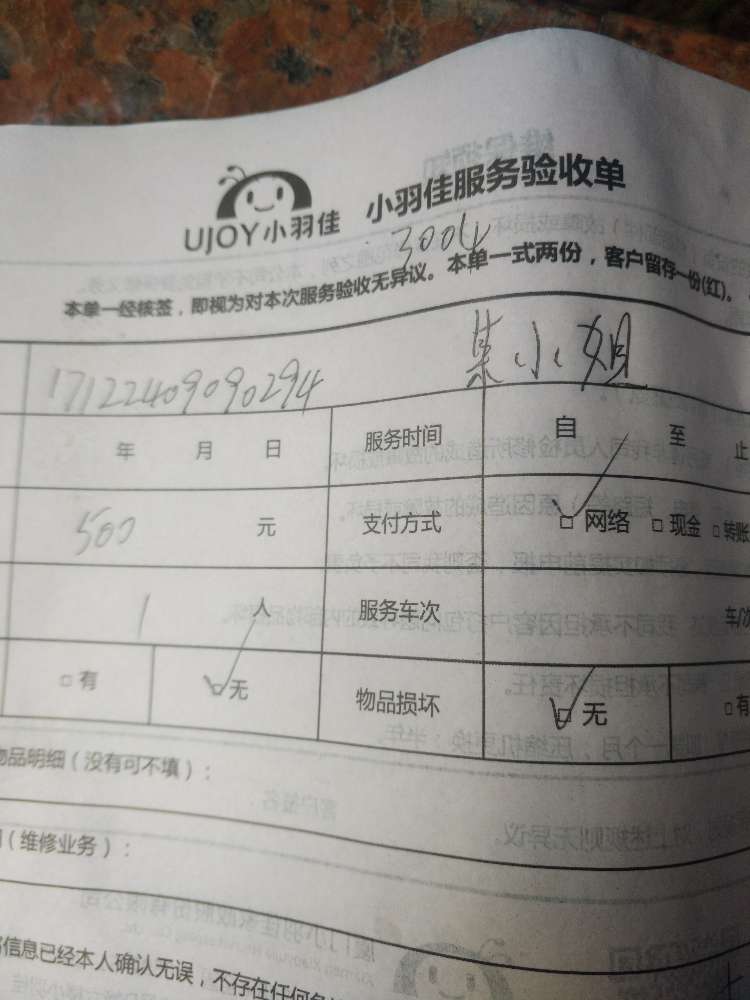 UJOY小羽佳 小羽佳服务验收单
3004
本单一经核签，即视为对本次服务验收无异议。本单一式两份，客户留存一份(红)。
17122409090294 某小姐
年 月 日 服务时间 自 至 止
500 元 支付方式 □网络 □现金 □转账
1 人 服务车次 车/次
□有 □无 物品损坏 □无 □有
物品明细（没有可不填）：
（维修业务）：
信息已经本人确认无误，不存在任何